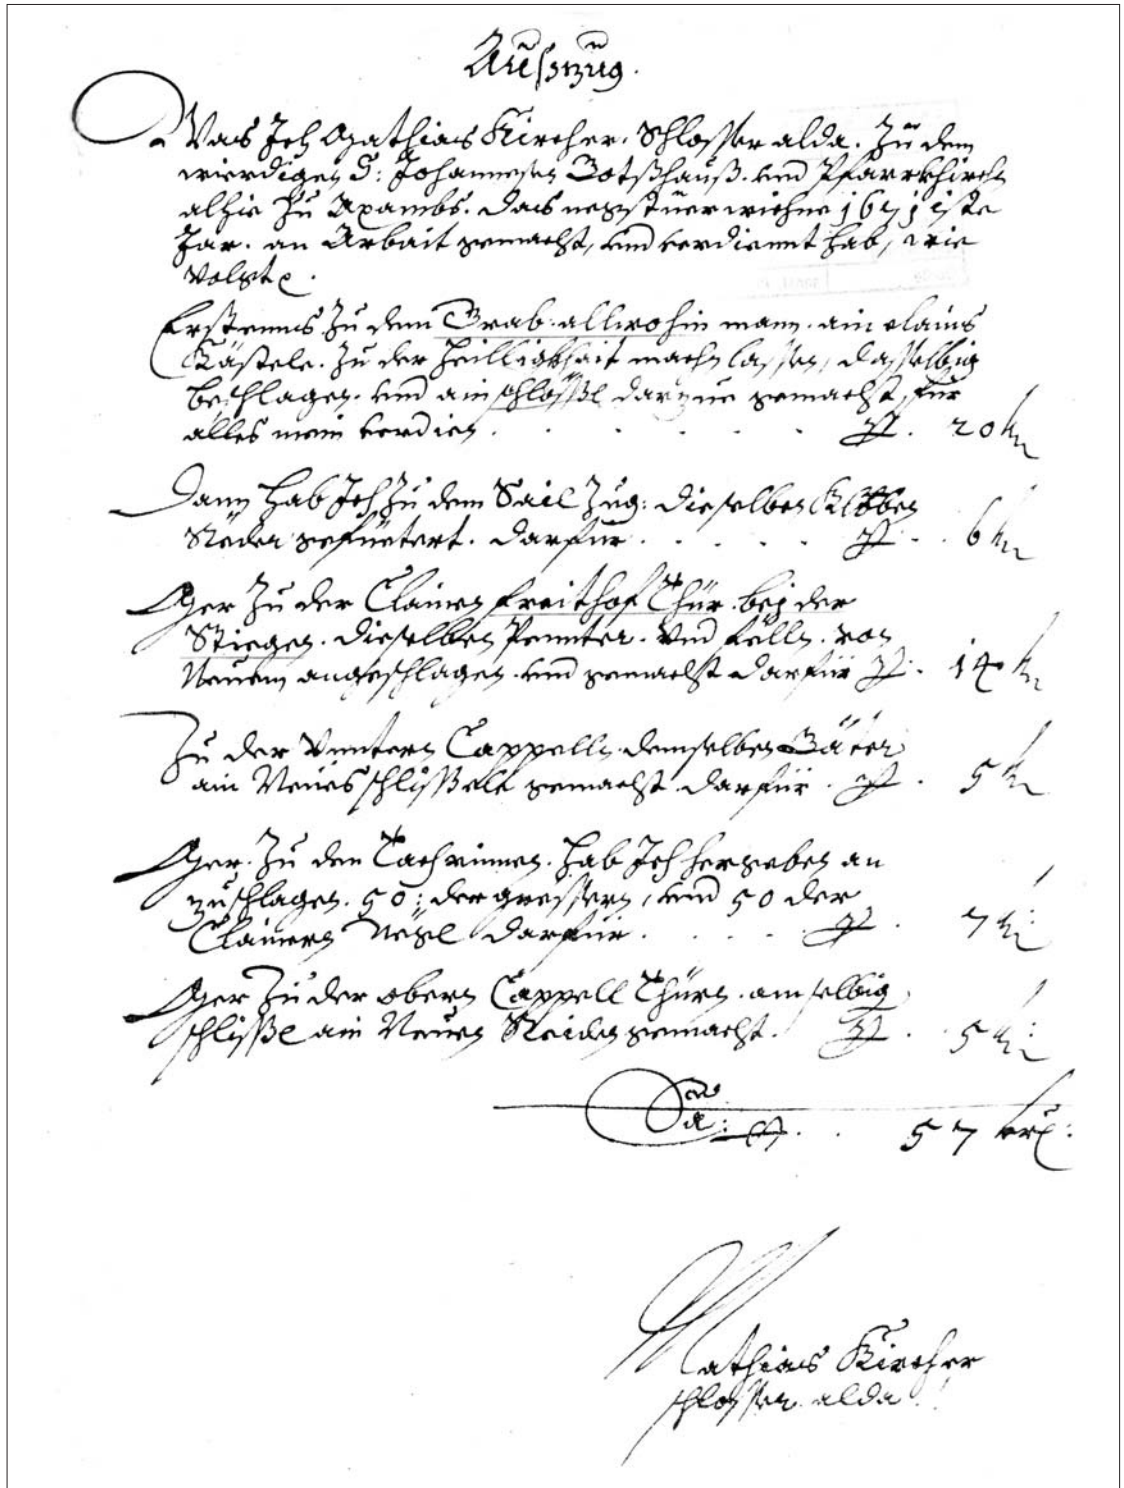 Auszzug.
Was Ich Mathias Kircher. Schlosser alda. Zu dem
wierdigen S: Johannesen Gotßhauß. und Pfarrkhirchen
alhie zu Axambs. das negst verwichne 1671 iste
Jar. an Arbait gemacht, und verdiennt hab, wie
Volgt
Erstenns Zu dem Grab. allwohin mann. ain clains
Kästele. Zu der Heilligkhait machn lassen, dasselbig
beschlagen. und ain schlössl darzue gemacht, für
alles mein verdien . . . . . 20 kr
Dann hab Ich Zu dem Sail Zug: dieselben Kloben
Räder gefüetert. darfür . . . . . 6 kr
Mer Zu der Clainen freithof Thür. bey der
Stiegen. dieselben Pennter. Und fälln. von
Neuem angeschlagen und gemacht darfür . 14 kr
Zu der Unntern Cappelln demselben Gäter
ain Neues schlisßele gemacht. darfür . . 5 kr
Mer. Zu den Tachrinnen. hab Ich hergeben an
zuschlagen. 50: der gressern, und 50 der
Clainern Negl darfür . . . . 7 kr:
Mer Zu der obern Cappell Thürn. am selbig
schlißl ain Neuen gemacht. . . 5 kr:
Sa: . . 57 kr:
Mathias Kircher
schlosser alda